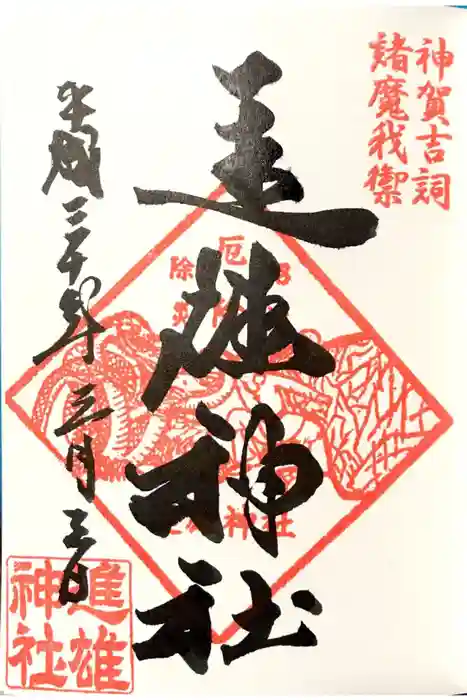 神賀吉詞
諸魔我禦
進雄神社
平成三十年三月三日
厄
除
神社
進雄
神社